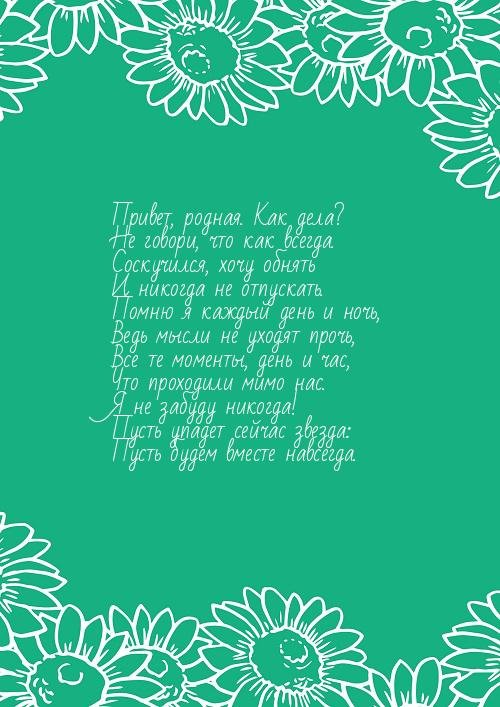 Привет, родная. Как дела?
Не говори, что как всегда.
Соскучился, хочу обнять
И никогда не отпускать.
Помню я каждый день и ночь,
Ведь мысли не уходят прочь,
Все те моменты, день и час,
Что проходили мимо нас.
Я не забуду никогда!
Пусть упадет сейчас звезда:
Пусть будем вместе навсегда.